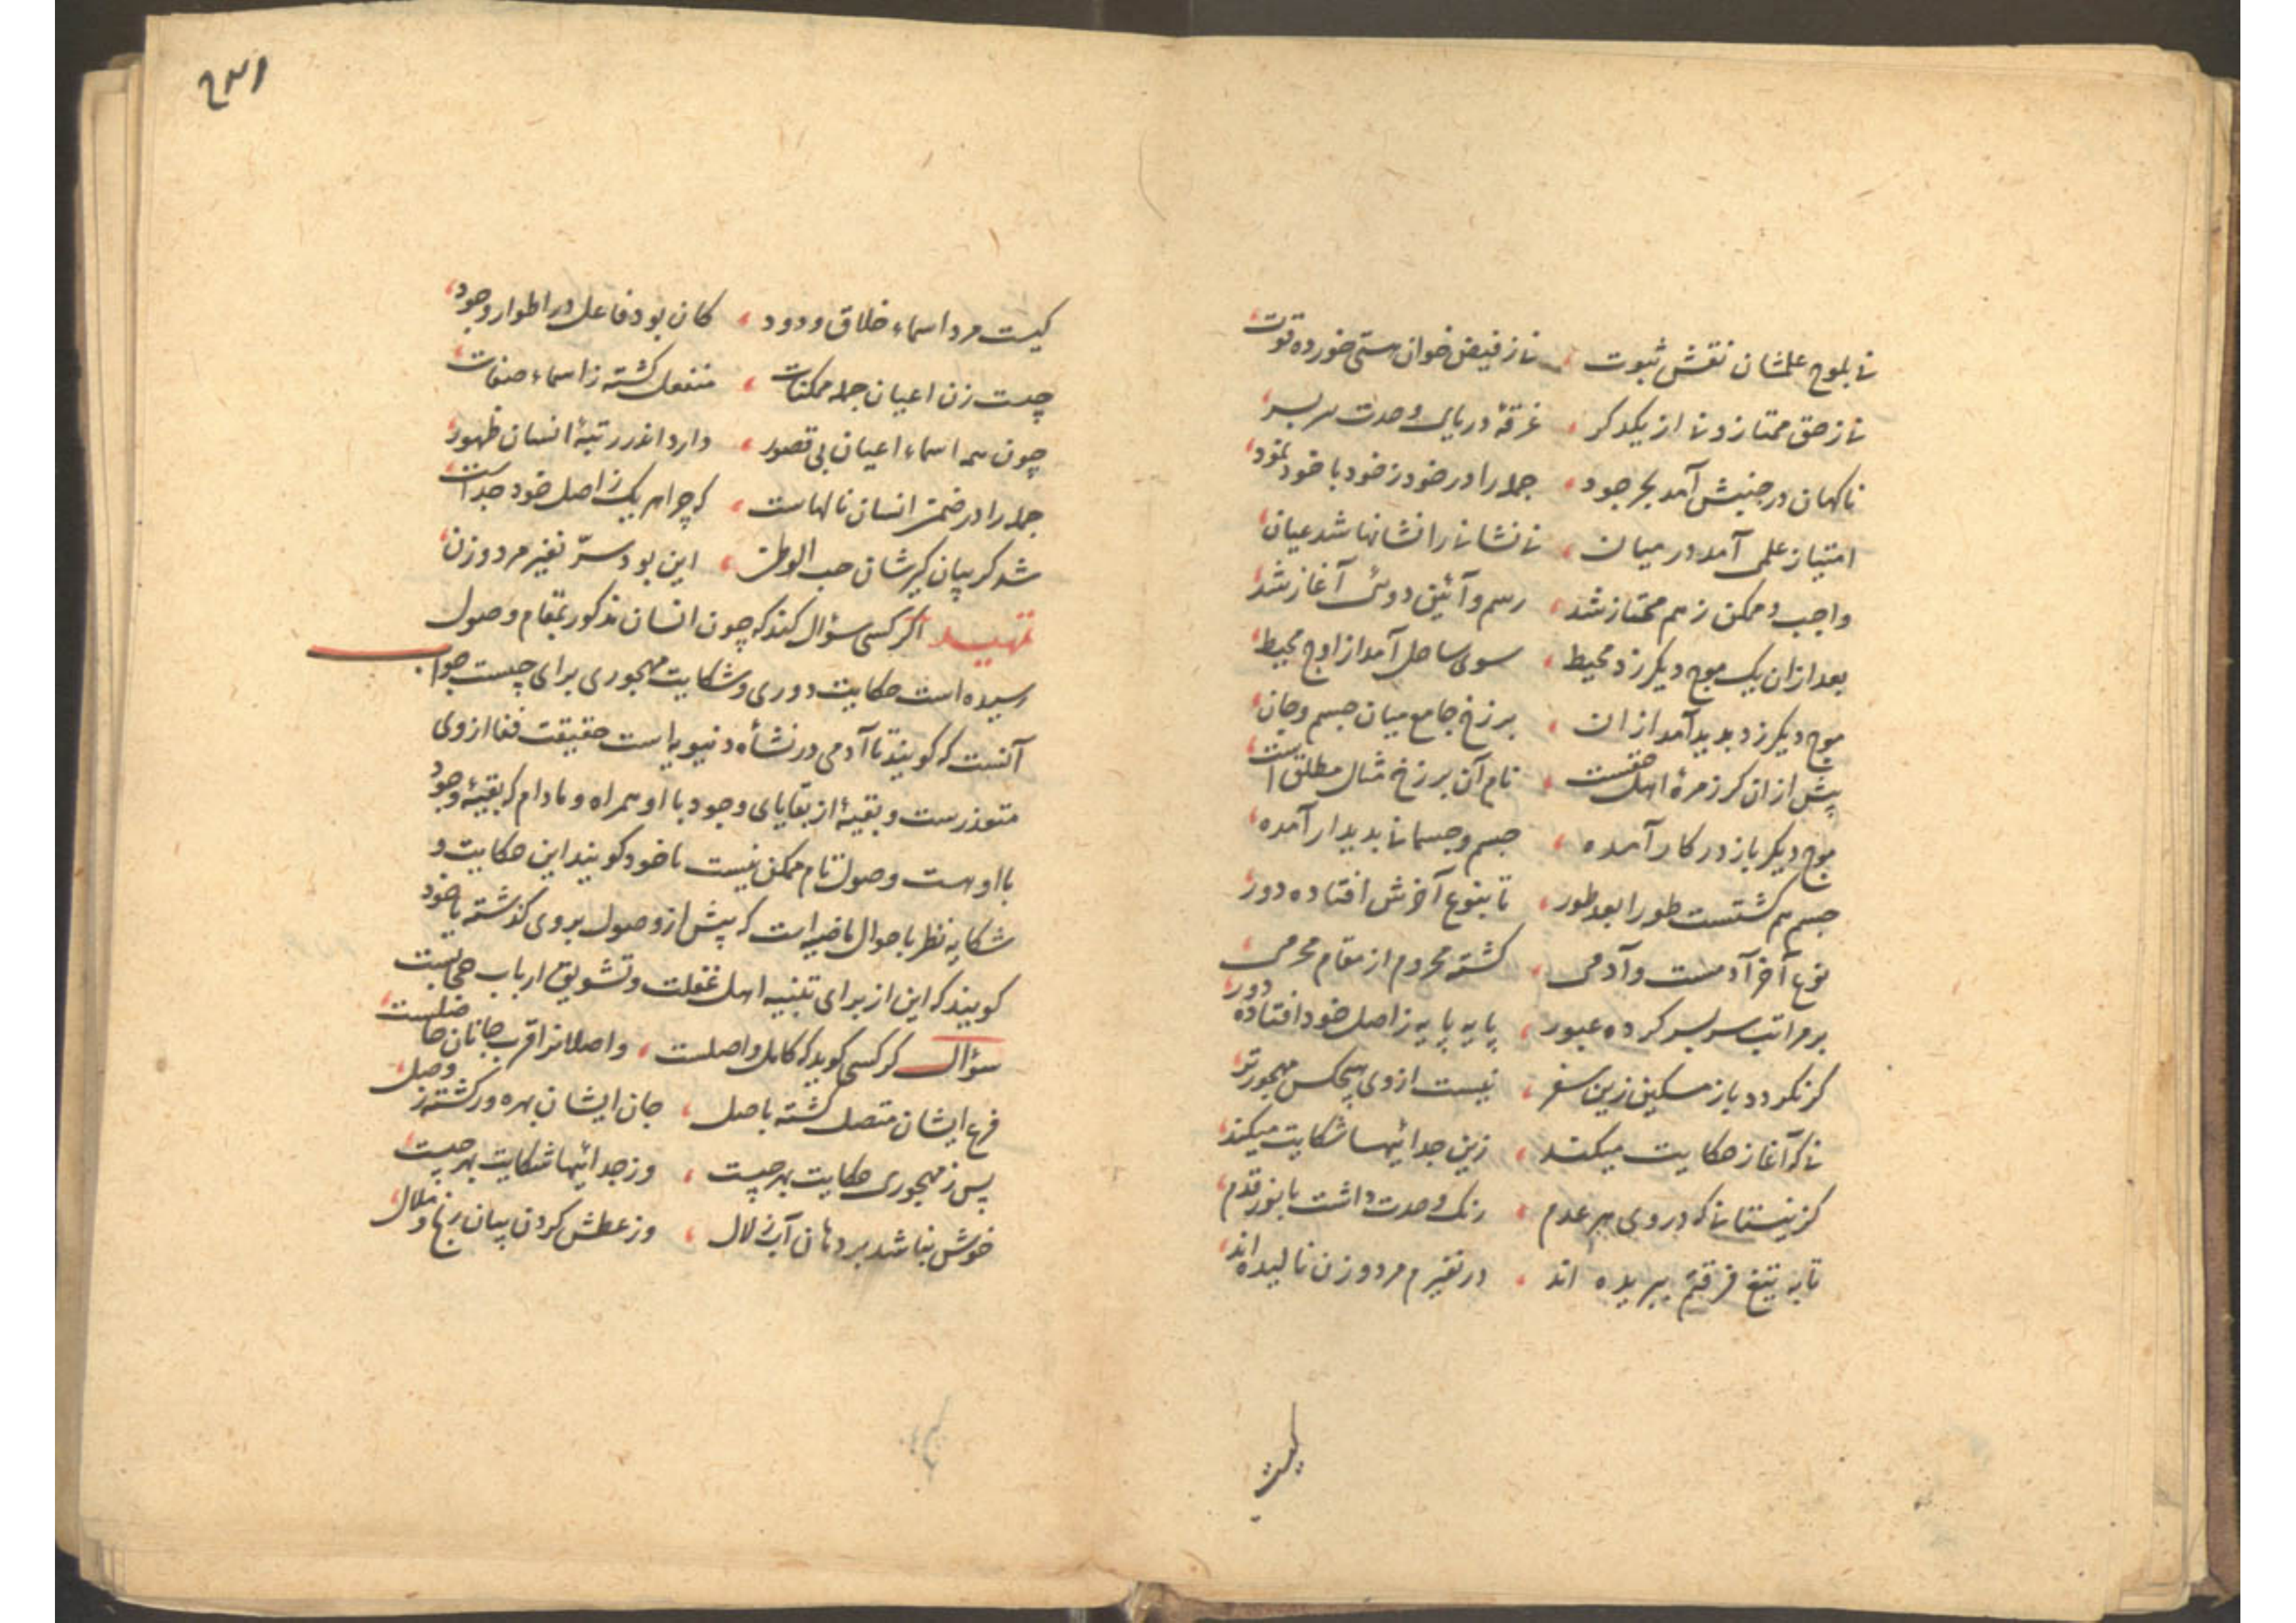 نا بلوح علمشان نقش ثبوت ، نا ز فیض خوان هستی خورده قوت
نا ز حق ممتاز و نا از یکدکر ، غرقهٔ دریای وحدت سر بسر
ناکهان در جنبش آمد بحر جود ، جمله را در خود ز خود با خود نمود
امتیاز علمی آمد در میان ، نا نشانانرا نشانها شد عیان
واجب و ممکن ز هم ممتاز شد ، رسم و آئین دوئی آغاز شد
بعد ازان یک موج دیکر زد محیط ، سوی ساحل آمد از اوج محیط
موج دیکر زد بدید آمد ازان ، برزخ جامع میان جسم و جان
پیش ازان کز زمرهٔ اهل حقست ، نام آن برزخ مثال مطلق است
موج دیکر باز در کار آمده ، جسم و جسمانی بدیدار آمده
جسم هم کشتست طورا بعد طور ، تا بنوع آخرش افتاده دور
نوع آخر آدمست و آدمی ، کشته محروم از مقام محرمی
بر مراتب سر بسر کرده عبور ، پایه پایه ز اصل خود افتاده دور
کر نکردد باز مسکین زین سفر ، نیست از وی هیچکس مهجورتر
نا که آغاز حکایت میکند ، زین جدائیها شکایت میکند
کز نیستانا که در وی هر عدم ، رنک وحدت داشت با نور قدم
تا به تیغ فرقتم ببریده اند ، در نفیرم مرد و زن نالیده اند
کیست
۲۳۱
کیست مرد اسماء خلاق ودود ، کان بود فاعل در اطوار وجود
چیست زن اعیان جمله ممکنات ، منفعل کشته ز اسماء صفات
چون همه اسماء اعیان بی قصور ، دارد اندر رتبهٔ انسان ظهور
جمله را در ضمن انسان نالهاست ، که چرا هر یک ز اصل خود جداست
شد کریبان کیرشان حب الوطن ، این بود سرّ نفیر مرد و زن
تمهید اکر کسی سؤال کند که چون انسان مذکور بمقام وصول
رسیده است حکایت دوری و شکایت مهجوری برای چیست جواب
آنست که کویند تا آدمی در نشأه دنیویه است حقیقت فنا از وی
متعذرست و بقیهٔ از بقایای وجود با او همراه و مادام که بقیهٔ وجود
با اوست وصول تام ممکن نیست تا خود کویند این حکایت و
شکایه نظر باحوال ماضیه است که پیش از وصول بروی کذشته یا خود
کویند که این از برای تنبیه اهل غفلت و تشویق ارباب محبتست
سؤال کر کسی کوید که کامل واصلست ، واصلانرا قرب جانان حاصلست
فرع ایشان متصل کشته باصل ، جان ایشان بهره ور کشته ز وصل
پس ز مهجوری حکایت بهر چیست ، وز جدائیها شکایت بهر چیست
خوش نباشد بر دهان آب زلال ، وز عطش کردن بیان رنج و ملال